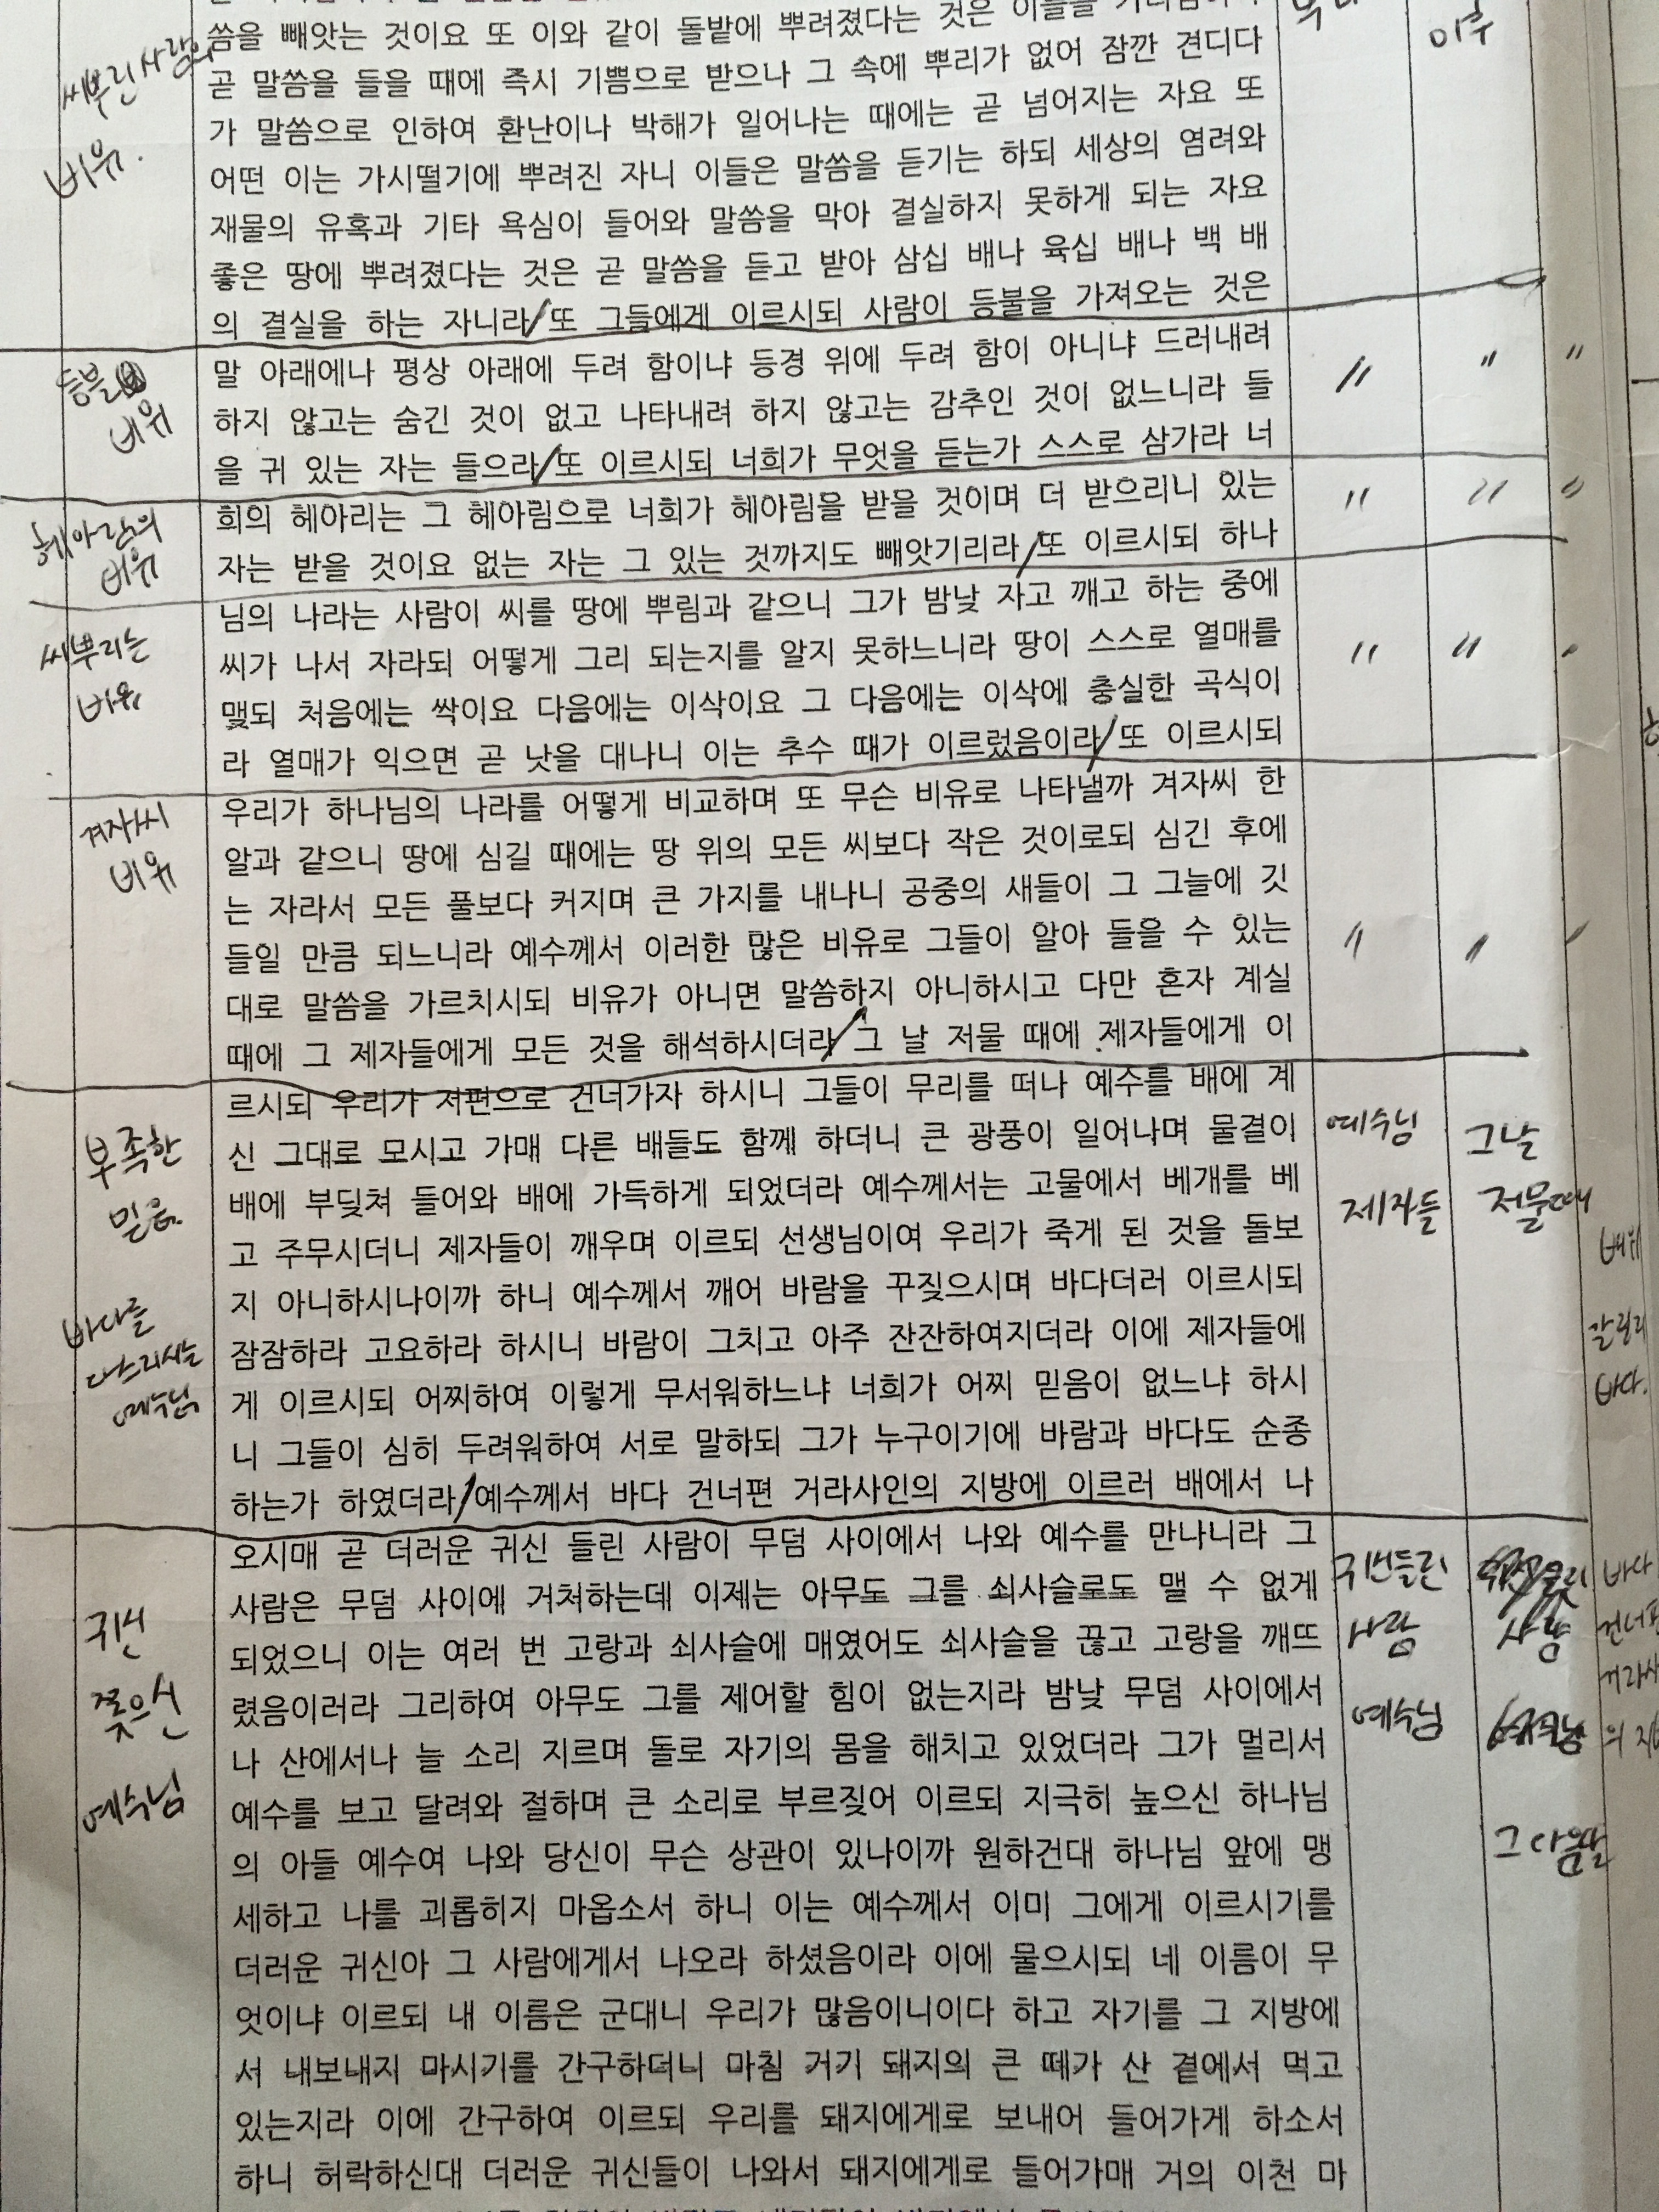 씀을 빼앗는 것이요 또 이와 같이 돌밭에 뿌려졌다는 것은 이들을
곧 말씀을 들을 때에 즉시 기쁨으로 받으나 그 속에 뿌리가 없어 잠깐 견디다
가 말씀으로 인하여 환난이나 박해가 일어나는 때에는 곧 넘어지는 자요 또
어떤 이는 가시떨기에 뿌려진 자니 이들은 말씀을 듣기는 하되 세상의 염려와
재물의 유혹과 기타 욕심이 들어와 말씀을 막아 결실하지 못하게 되는 자요
좋은 땅에 뿌려졌다는 것은 곧 말씀을 듣고 받아 삼십 배나 육십 배나 백 배
의 결실을 하는 자니라/또 그들에게 이르시되 사람이 등불을 가져오는 것은
말 아래에나 평상 아래에 두려 함이냐 등경 위에 두려 함이 아니냐 드러내려
하지 않고는 숨긴 것이 없고 나타내려 하지 않고는 감추인 것이 없느니라 들
을 귀 있는 자는 들으라/또 이르시되 너희가 무엇을 듣는가 스스로 삼가라 너
희의 헤아리는 그 헤아림으로 너희가 헤아림을 받을 것이며 더 받으리니 있는
자는 받을 것이요 없는 자는 그 있는 것까지도 빼앗기리라/또 이르시되 하나
님의 나라는 사람이 씨를 땅에 뿌림과 같으니 그가 밤낮 자고 깨고 하는 중에
씨가 나서 자라되 어떻게 그리 되는지를 알지 못하느니라 땅이 스스로 열매를
맺되 처음에는 싹이요 다음에는 이삭이요 그 다음에는 이삭에 충실한 곡식이
라 열매가 익으면 곧 낫을 대나니 이는 추수 때가 이르렀음이라/또 이르시되
우리가 하나님의 나라를 어떻게 비교하며 또 무슨 비유로 나타낼까 겨자씨 한
알과 같으니 땅에 심길 때에는 땅 위의 모든 씨보다 작은 것이로되 심긴 후에
는 자라서 모든 풀보다 커지며 큰 가지를 내나니 공중의 새들이 그 그늘에 깃
들일 만큼 되느니라 예수께서 이러한 많은 비유로 그들이 알아 들을 수 있는
대로 말씀을 가르치시되 비유가 아니면 말씀하지 아니하시고 다만 혼자 계실
때에 그 제자들에게 모든 것을 해석하시더라/그 날 저물 때에 제자들에게 이
르시되 우리가 저편으로 건너가자 하시니 그들이 무리를 떠나 예수를 배에 계
신 그대로 모시고 가매 다른 배들도 함께 하더니 큰 광풍이 일어나며 물결이
배에 부딪쳐 들어와 배에 가득하게 되었더라 예수께서는 고물에서 베개를 베
고 주무시더니 제자들이 깨우며 이르되 선생님이여 우리가 죽게 된 것을 돌보
지 아니하시나이까 하니 예수께서 깨어 바람을 꾸짖으시며 바다더러 이르시되
잠잠하라 고요하라 하시니 바람이 그치고 아주 잔잔하여지더라 이에 제자들에
게 이르시되 어찌하여 이렇게 무서워하느냐 너희가 어찌 믿음이 없느냐 하시
니 그들이 심히 두려워하여 서로 말하되 그가 누구이기에 바람과 바다도 순종
하는가 하였더라/예수께서 바다 건너편 거라사인의 지방에 이르러 배에서 나
오시매 곧 더러운 귀신 들린 사람이 무덤 사이에서 나와 예수를 만나니라 그
사람은 무덤 사이에 거처하는데 이제는 아무도 그를 쇠사슬로도 맬 수 없게
되었으니 이는 여러 번 고랑과 쇠사슬에 매였어도 쇠사슬을 끊고 고랑을 깨뜨
렸음이러라 그리하여 아무도 그를 제어할 힘이 없는지라 밤낮 무덤 사이에서
나 산에서나 늘 소리 지르며 돌로 자기의 몸을 해치고 있었더라 그가 멀리서
예수를 보고 달려와 절하며 큰 소리로 부르짖어 이르되 지극히 높으신 하나님
의 아들 예수여 나와 당신이 무슨 상관이 있나이까 원하건대 하나님 앞에 맹
세하고 나를 괴롭히지 마옵소서 하니 이는 예수께서 이미 그에게 이르시기를
더러운 귀신아 그 사람에게서 나오라 하셨음이라 이에 물으시되 네 이름이 무
엇이냐 이르되 내 이름은 군대니 우리가 많음이니이다 하고 자기를 그 지방에
서 내보내지 마시기를 간구하더니 마침 거기 돼지의 큰 떼가 산 곁에서 먹고
있는지라 이에 간구하여 이르되 우리를 돼지에게로 보내어 들어가게 하소서
하니 허락하신대 더러운 귀신들이 나와서 돼지에게로 들어가매 거의 이천 마
씨뿌린 사람의
비유.
등불
비유
헤아림의
비유
씨뿌리는
비유
겨자씨
비유
부족한
믿음.
바다를
다스리시는
예수님
귀신
쫓으신
예수님
이후
〃 〃 〃
〃 〃 〃
〃 〃 〃
〃 〃 〃
예수님
제자들
그날
저물때
배위
갈릴리
바다.
귀신들린
사람
예수님
사람
그 다음날
바다
건너편
거라사
의 지